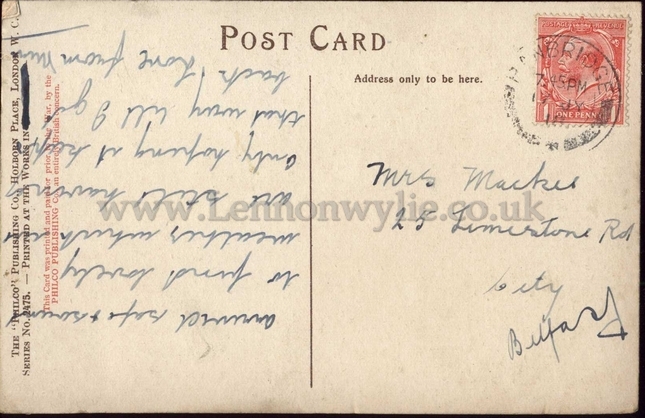 POST CARD
Address only to be here.
POSTAGE REVENUE
ONE PENNY
7.45PM
Mrs Mackee
25 Limestone Rd
City
Belfast
arrived safe & sound
to find lovely
weather which
are still having
only hoping it keeps
that way till I get
back home from
THE "PHILCO" PUBLISHING CO., HOLBORN PLACE, LONDON W. C.
SERIES No. 2475. — PRINTED AT THE WORKS IN
This Card was printed and paid for prior to the War, by the
PHILCO PUBLISHING Co. an entirely British concern.
www.Lennonwylie.co.uk